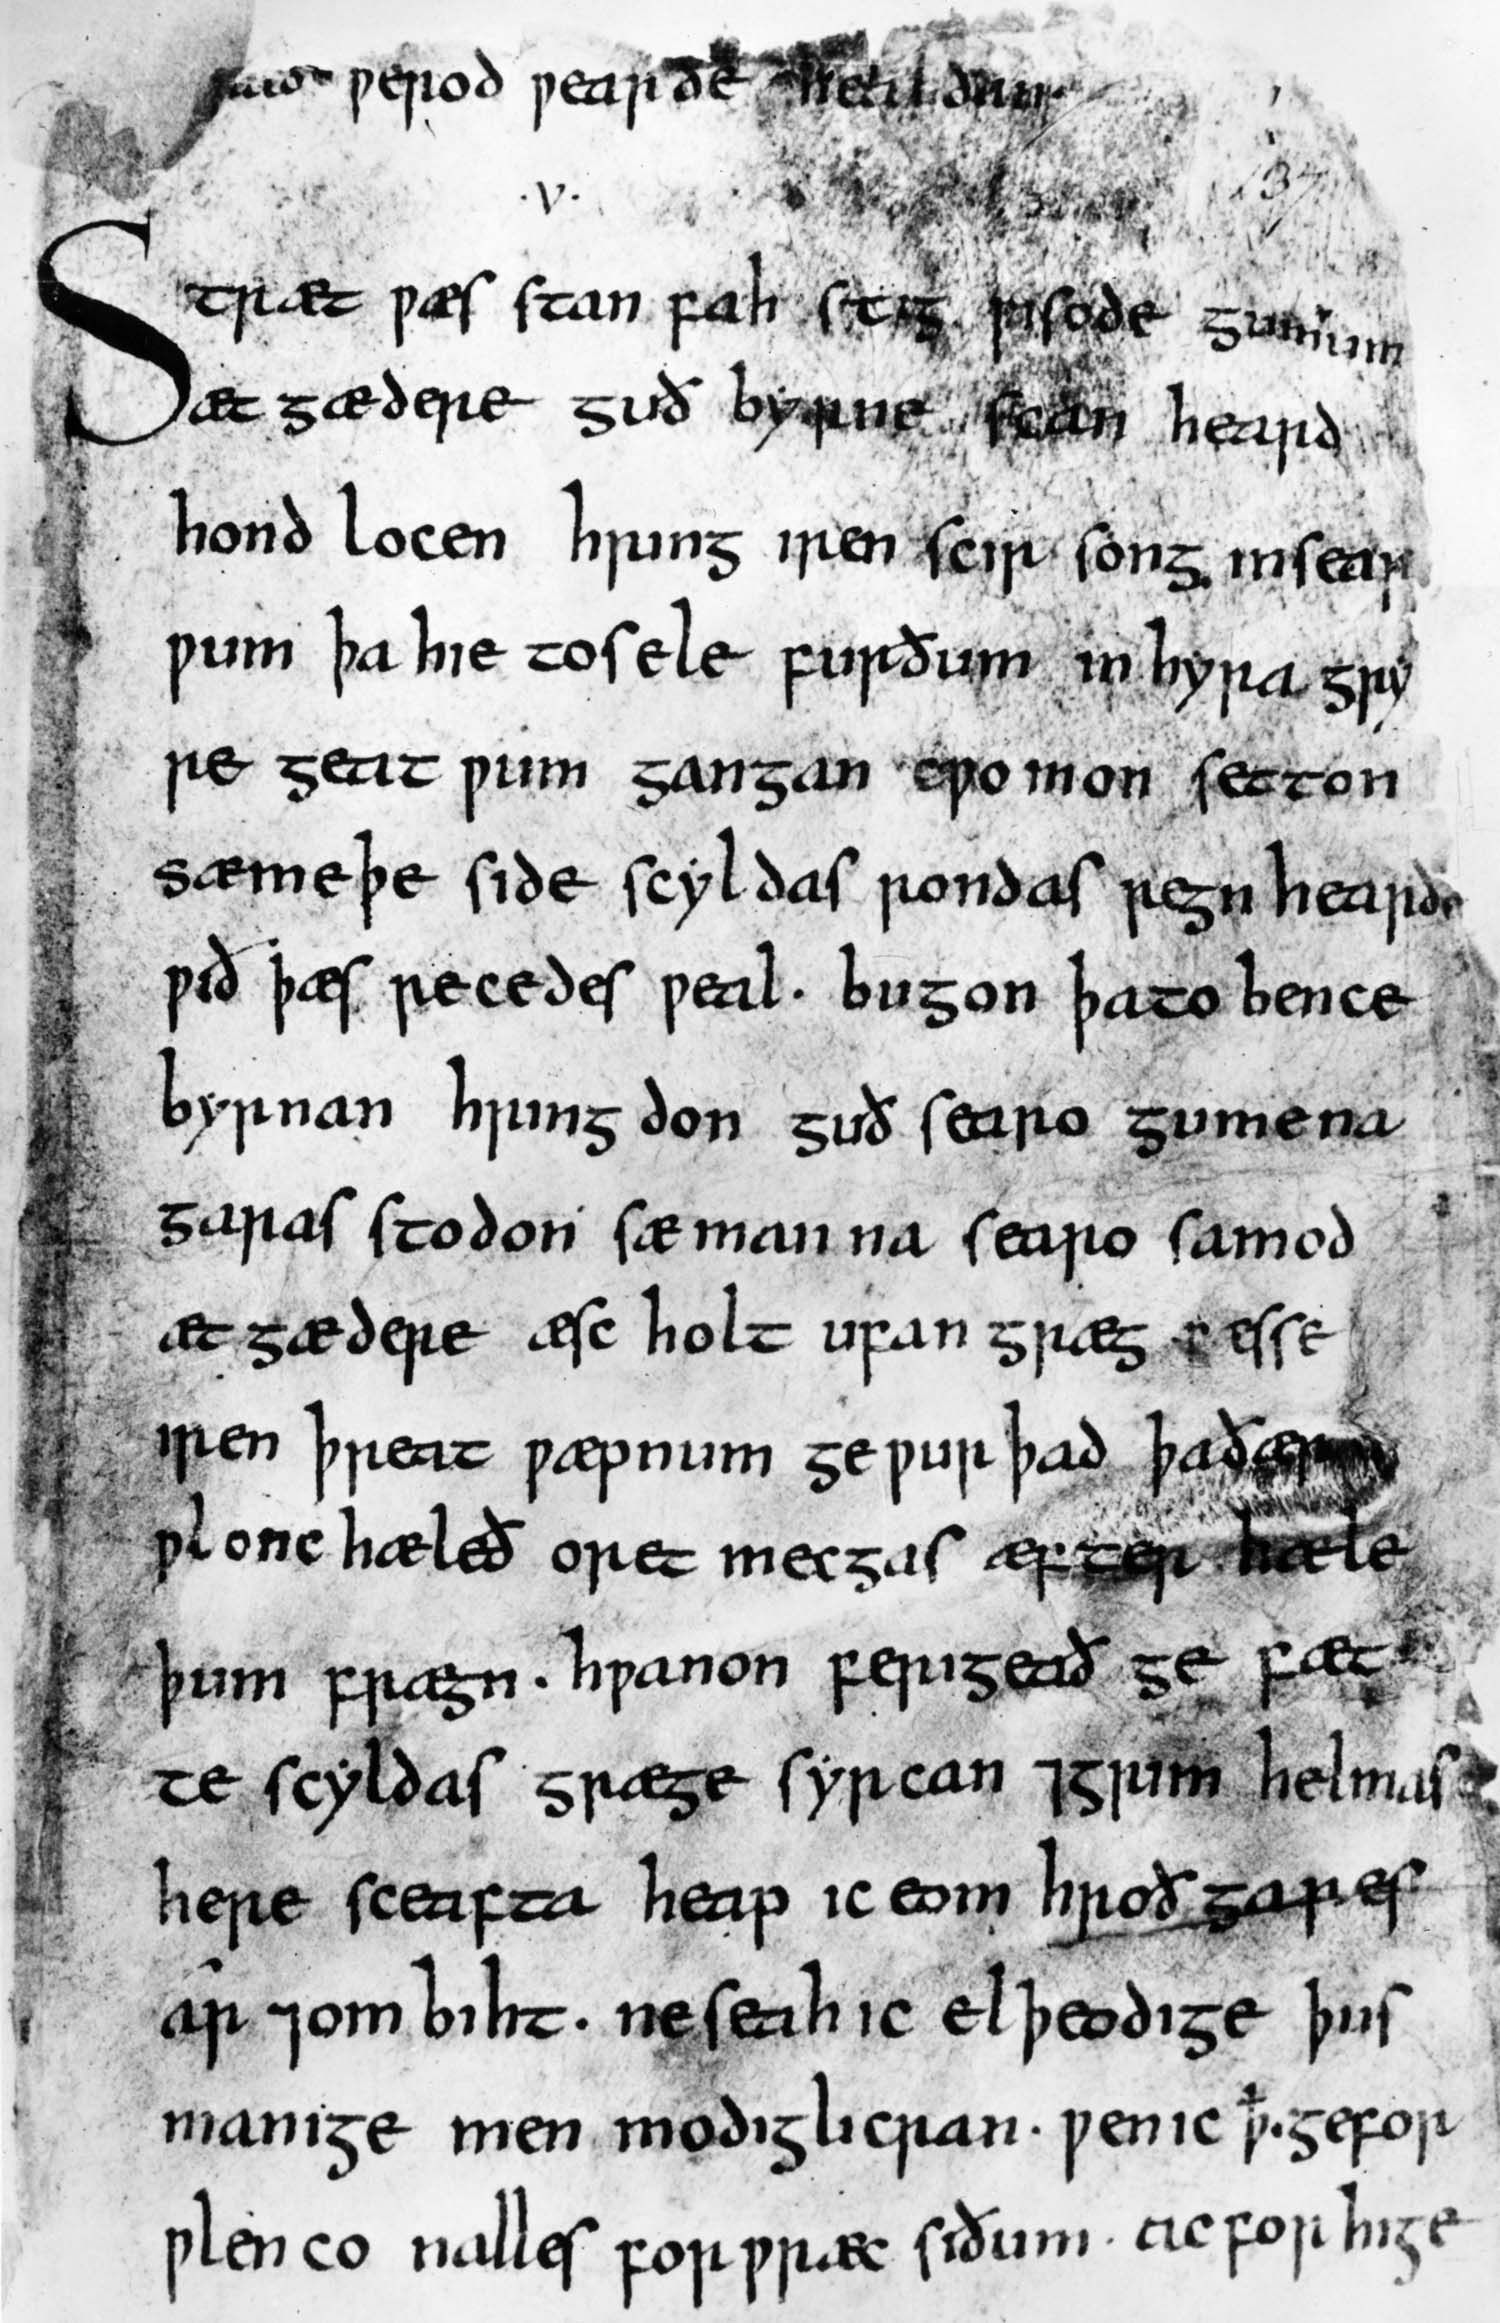 ƿerod ƿearde healdan
·V·
Stræt ƿæs stan fah stig ƿisode gumum
æt gædere guð byrne scan heard
hond locen hring iren scir song insear
ƿum þa hie tosele furðum in hyra gry
re geat ƿum gangan cƿo mon setton
sæmeþe side scyldas rondas regn hearde
ƿið þæs recedes ƿeal· bugon þato bence
byrnan hring don guð searo gumena
garas stodon sæ man na searo samod
æt gædere æsc holt ufan græg ƿ esse
iren þreat ƿæpnum ge ƿur þad þaðær
ƿlonc hæleð oret mecgas æfter hæle
þum frægn· hƿanon ferigeað ge fæt
te scyldas græge syrcan ⁊grim helmas
here sceafta heap ic eom hroð gares
ar ⁊om biht· ne seah ic el þeodige þus
manige men modiglicran· ƿen ic ꝥ· ge for
ƿlen co nalles for ƿræc siðum· ac for hige